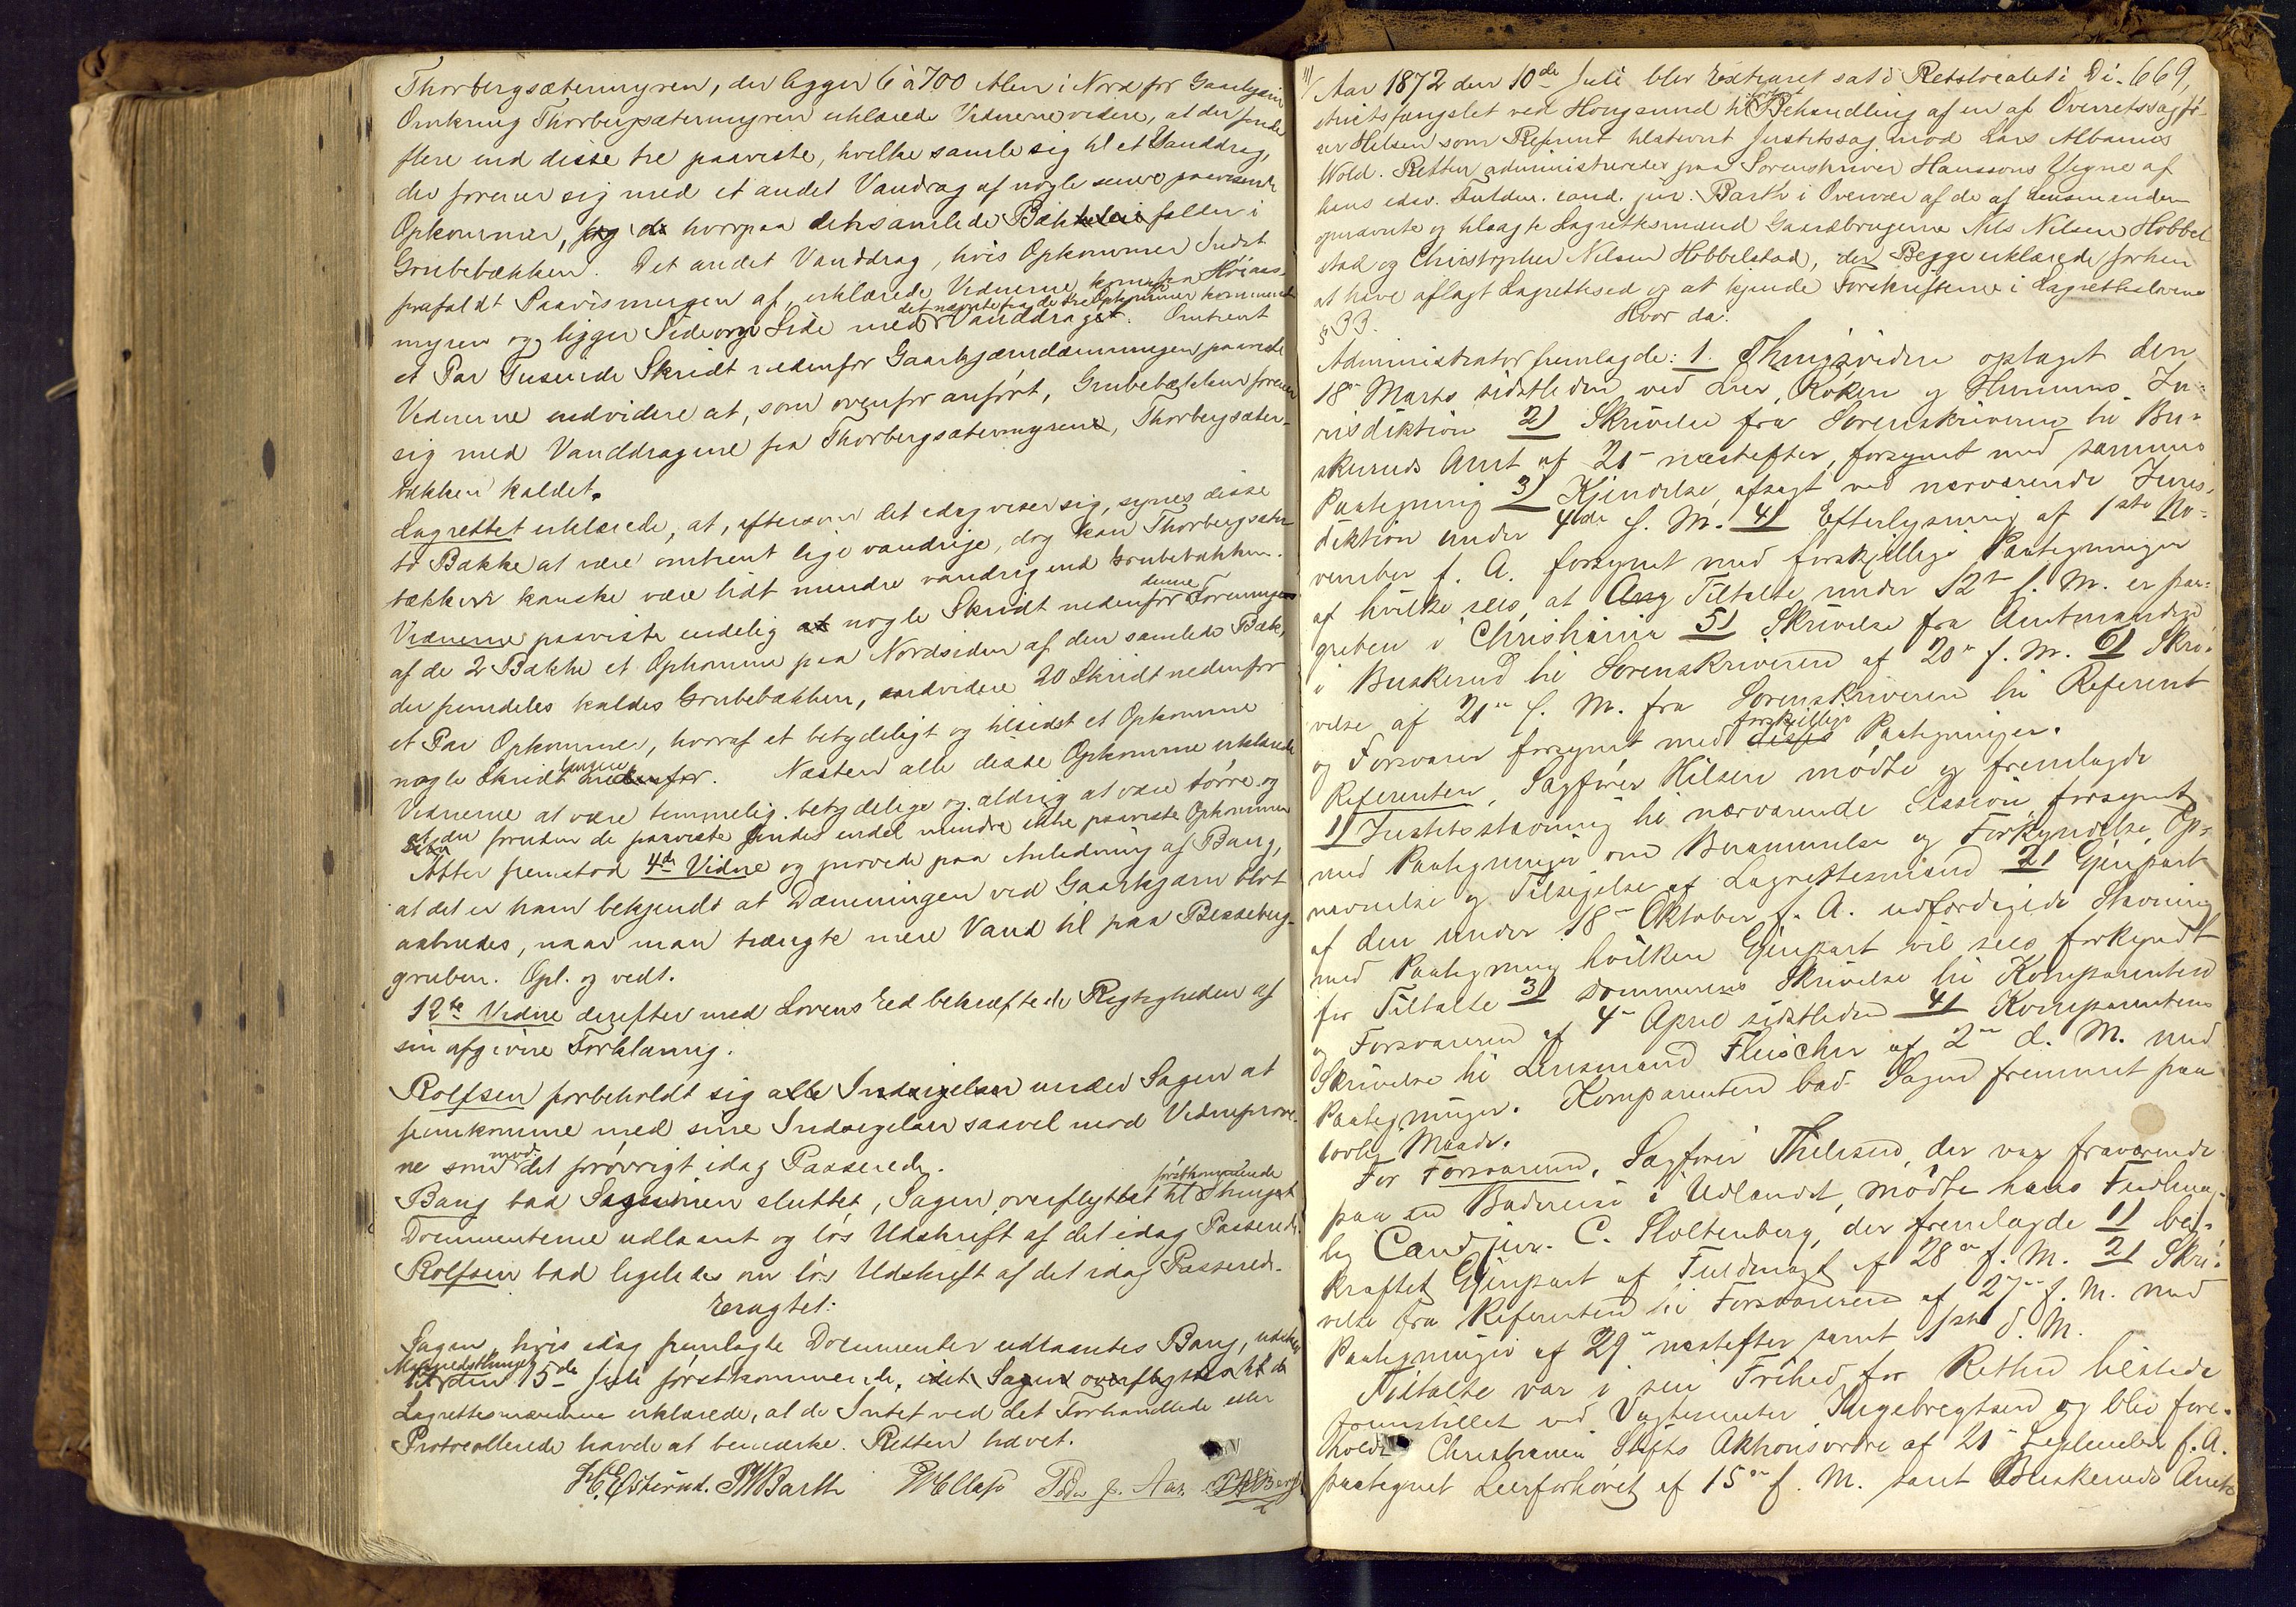 Thorbergsætermyren, der ligger 6 à 700 Alen i Nord for Gaaskjærn
Omkring Thorbergsætermyren erklærede Vidnerne videre, at der findes
flere end disse tre paaviste, hvilke samle sig til et Vanddrag,
der forener sig med et andet Vandrag af nogle senere paaviste
Opkommer, hvorpaa det samlede Bækkeleie falder i
Grubebækken. Det andet Vanddrag, hvis Opkommer Indst
frafaldt Paavisningen af, erklærede Vidnerne komme fra Høiaas-
myren og ligger Side om Side med det nævnte fra de tre Opkommer kommende Vanddraget. Omtrent
et Par Tusende Skridt nedenfor Gaaskjærndæmningen paaviste
Vidnerne endvidere at, som ovenfor anført, Grubebækken forener
sig med Vanddragene fra Thorbergsætermyrene, Thorbergsæter-
bækken kaldet.
Lagrettet erklærede, at, eftersom det idag viser sig, synes disse
to Bække at være omtrent lige vandrige, dog kan Thorbergsæter-
bækken kanske være lidt mindre vandrig end Grubebækken.
Vidnerne paaviste endelig nogle Skridt nedenfor denne Forening
af de 2 Bække et Opkomme paa Nordsiden af den samlede Bæk,
der fremdeles kaldes Grubebækken, endvidere 20 Skridt nedenfor
et Par Opkommer, hvoraf et betydeligt og tilsidst et Opkomme
nogle Skridt længere nedenfor. Næsten alle disse Opkomme erklærede
Vidnerne at være temmelig betydelige og aldrig at være tørre og
at der foruden de paaviste findes endel mindre ikke paaviste Opkommer
Atter fremstod 4de Vidne og provede paa Anledning af Bang,
at det er ham bekjendt at Dæmningen ved Gaaskjærn blot
aabnedes, naar man trængte mere Vand til paa Besseberg-
gruben. Opl. og vedt.
12te Vidne derefter med Lovens Eed bekræftede Rigtigheden af
sin afgivne Forklaring.
Rolfsen forbeholdt sig alle Indsigelser under Sagen at
fremkomme med sine Indsigelser saavel mod Vidneprove-
ne som mod det forøvrigt idag Passerede.
Bang bad Sessionen sluttet, Sagen overflyttet til førstkommende Thinget
Documenterne udlaant og løs Udskrift af det idag Passerede.
Rolfsen bad ligeledes om løs Udskrift af det idag Passerede.
Eragtet:
Sagen, hvis idag fremlagte Documenter udlaantes Bang, udsættes
til Maanedsthinget den 15de Juli førstkommende, idet Sagen overflyttes til
Lagrettesmændene erklærede, at de Intet ved det Forhandlede eller
Protocollerede havde at bemærke. Retten hævet.
H. Esterud. JWBarth
Aar 1872 den 10de Juli blev Extraret sat i Retslocalet i Di- 669,
strictsfængslet ved Hougsund til Behandling af en af Overretssagfø-
rer Hilsen som Referent tilstævnt Justitssag mod Lars Albanus
Wold. Retten administreredes paa Sorenskriver Hanssons Vegne af
hans edsv. Fuldm. cand. jur. Barth i Overvær af de af Lensmanden
opnævnte og tilsagte Lagrettesmænd Gaardbrugerne Nils Nilsen Hobbel-
stad og Christopher Nilsen Hobbelstad, der Begge erklærede forhen
at have aflagt Lagrettesed og at kjende Forskrifterne i Lagretteslovens
§ 33. Hvor da:
Administrator fremlagde: 1. Thingsvidne optaget den
18de Marts sidstleden ved Lier, Røken og Hurums Ju-
risdiktion 2) Skrivelse fra Sorenskriveren til Bu-
skeruds Amt af 21de næstefter, forsynet med sammes
Paategning 3) Kjendelse, afsagt ved nærværende Juris-
diktion under 4de f. M. 4) Efterlysning af 1ste No-
vember f. A. forsynet med forskjellige Paategninger
af hvilke sees, at Tiltalte under 12te f. M. er paa-
greben i Christiania 5) Skrivelse fra Amtmanden
i Buskerud til Sorenskriveren af 20de f. M. 6) Skri-
velse af 21de f. M. fra Sorenskriveren til Referent
og Forsvarer forsynet med forskjellige Paategninger.
Referenten, Sagfører Hilsen mødte og fremlagde
1) Justitsstævning til nærværende Session forsynet
med Paategninger om Berammelse og Forkyndelse, Op-
nævnelse og Tilsigelse af Lagrettesmænd 2) Gjenpart
af den under 18de Oktober f. A. udfærdigede Stævning
med Paategning hvilken Gjenpart vil sees forkyndt
for Tiltalte 3) Dommerens Skrivelse til Komparenten
og Forsvareren af 4de April sidstleden 4) Komparentens
Skrivelse til Lensmand Fleischer af 2den d. M. med
Paategninger. Komparenten bad Sagen fremmet paa
lovlig Maade.
For Forsvareren, Sagfører Thilesen, der var fraværende
paa en Badereise i Udlandet, mødte hans Fuldmæg-
tig Cand. jur. C. Stoltenberg, der fremlagde 1) be-
kræftet Gjenpart af Fuldmagt af 28de f. M. 2) Skri-
velse fra Referenten til Forsvareren af 27de f. M. med
Paategninger af 29de næstefter samt 1ste d. M.
Tiltalte var i sin Frihed for Retten tilstede
fremstillet ved Vagtmester Ingebregtsen og blev fore-
holdt Christiania Stifts Aktionsordre af 21de September f. A.
paategnet Leirforhøret af 15de f. M. samt Buskeruds Amts